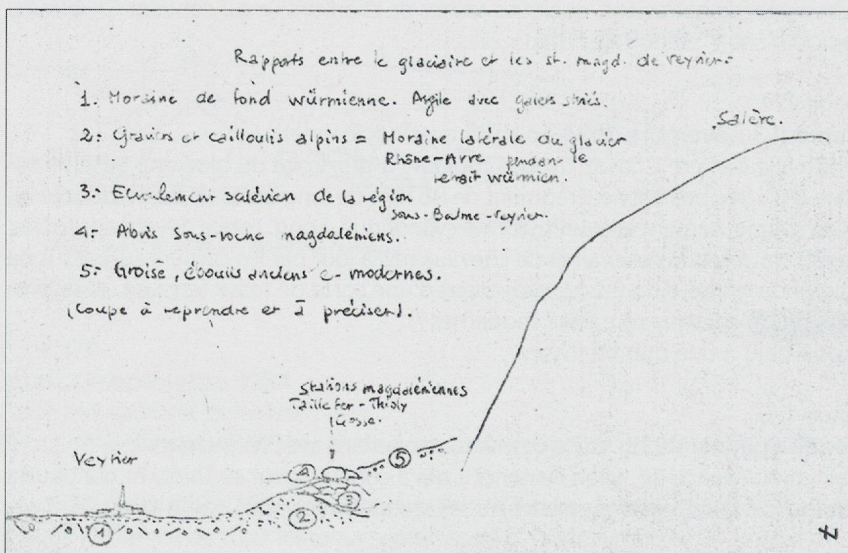 Rapports entre le glaciaire et les st. magd. de Veyrier.
1. Moraine de fond würmienne. Argile avec galets striés.
2. Graviers et cailloutis alpins = Moraine latérale du glacier
Rhône-Arve pendant le
retrait würmien.
3. Ecroulement salévien de la région
sous-Balme-Veyrier.
4. Abris sous-roche magdaléniens.
5. Groise, éboulis anciens et modernes.
(Coupe à reprendre et à préciser).
Salève.
Stations magdaléniennes
Taillefer-Thioly
Gosse.
Veyrier
5
4
3
2
1